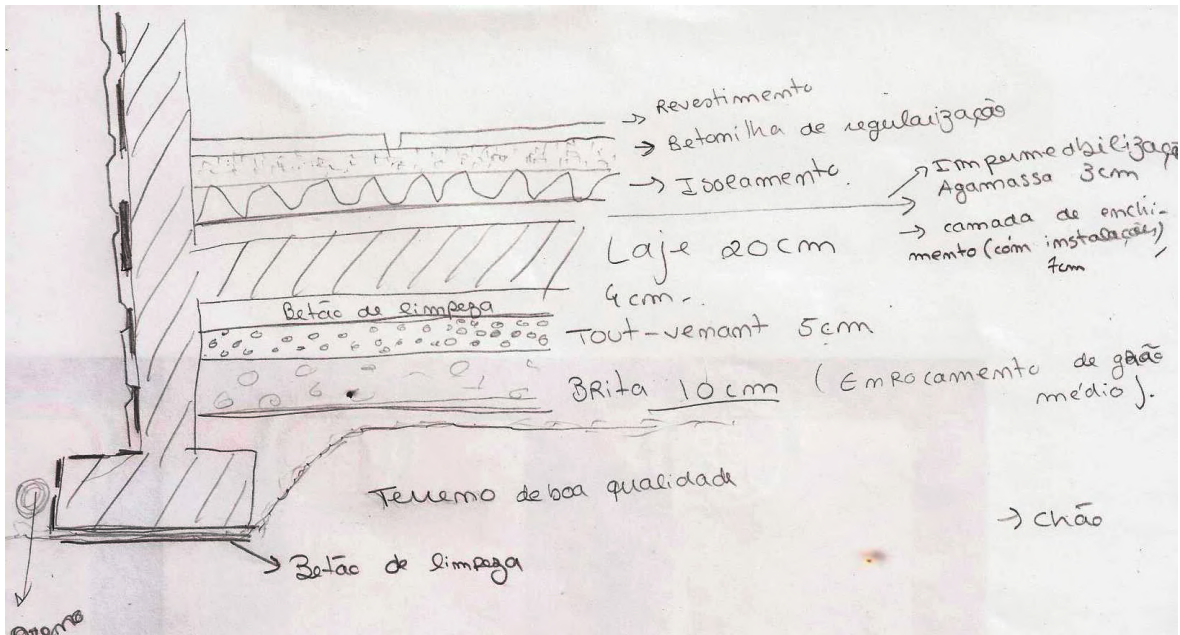 → Revestimento
→ Betomilha de regularização
→ Isolamento.
→ Impermeabilização
Agamassa 3cm
→ camada de enchi-
mento (com instalações)
7cm
Laje 20cm
4cm.
Betão de limpeza
Tout-venant 5cm
Brita 10cm (Enrocamento de grão
médio).
Terreno de boa qualidade
→ Chão
→ Betão de limpeza